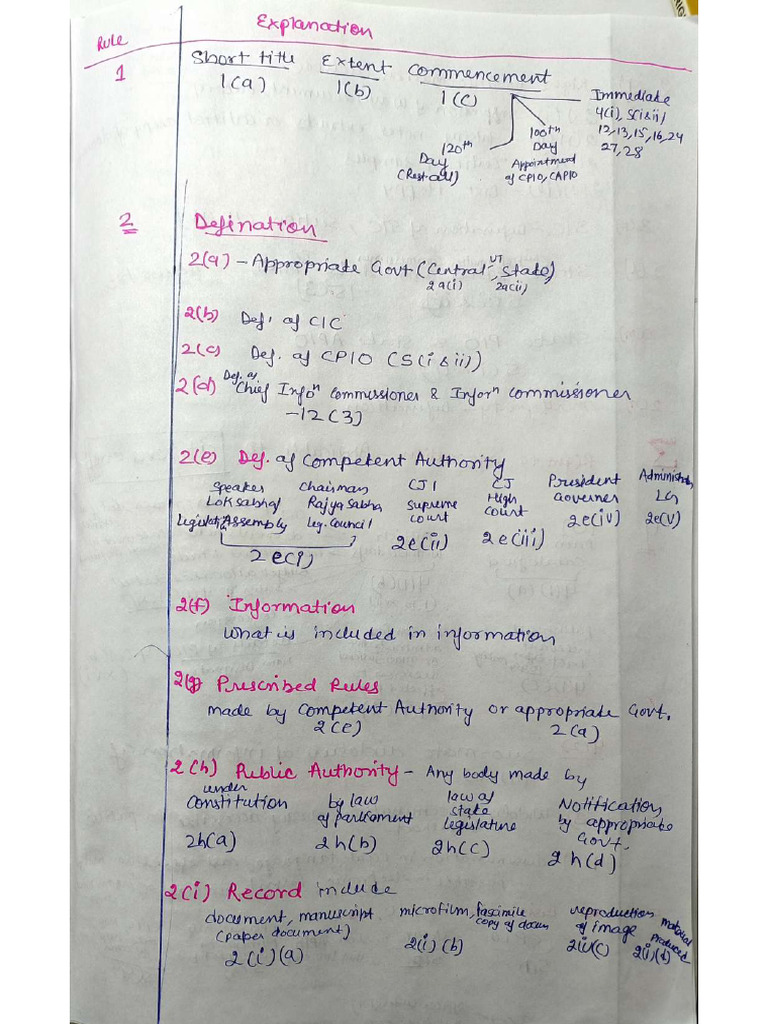 Rule Explanation
1 Short title Extent Commencement
1(a) 1(b) 1(c)
Immediate
4(i), 5(i&ii)
12,13,15,16,24
27,28
100th
Day
Appointment
of CPIO, CAPIO
120th
Day
(Rest all)
2 Defination
2(a) - Appropriate Govt (Central, UT, State)
2a(i) 2a(ii)
2(b) Def. of CIC
2(c) Def. of CPIO (5(i&ii))
2(d) Def. of Chief Infon Commissioner & Inforn Commissioner
-12(3)
2(e) Def. of Competent Authority
Speaker Chairman CJI CJ President Administra
Loksabha/ Rajya Sabha Supreme High Governer LG
Legislativ Assembly Leg. Council Court Court 2e(iv) 2e(v)
2e(i) 2e(ii) 2e(iii)
2(f) Information
What is included in information
2(g) Prescribed Rules
made by Competent Authority or appropriate Govt.
2(e) 2(a)
2(h) Public Authority - Any body made by
under Constitution by law of parliament law of state legislature Notification by appropriate Govt.
2h(a) 2h(b) 2h(c) 2h(d)
2(i) Record include
document, manuscript microfilm, fascimile reproduction material
(paper document) copy of docum of image produced
2(i)(a) 2(i)(b) 2(i)(c) 2(i)(d)